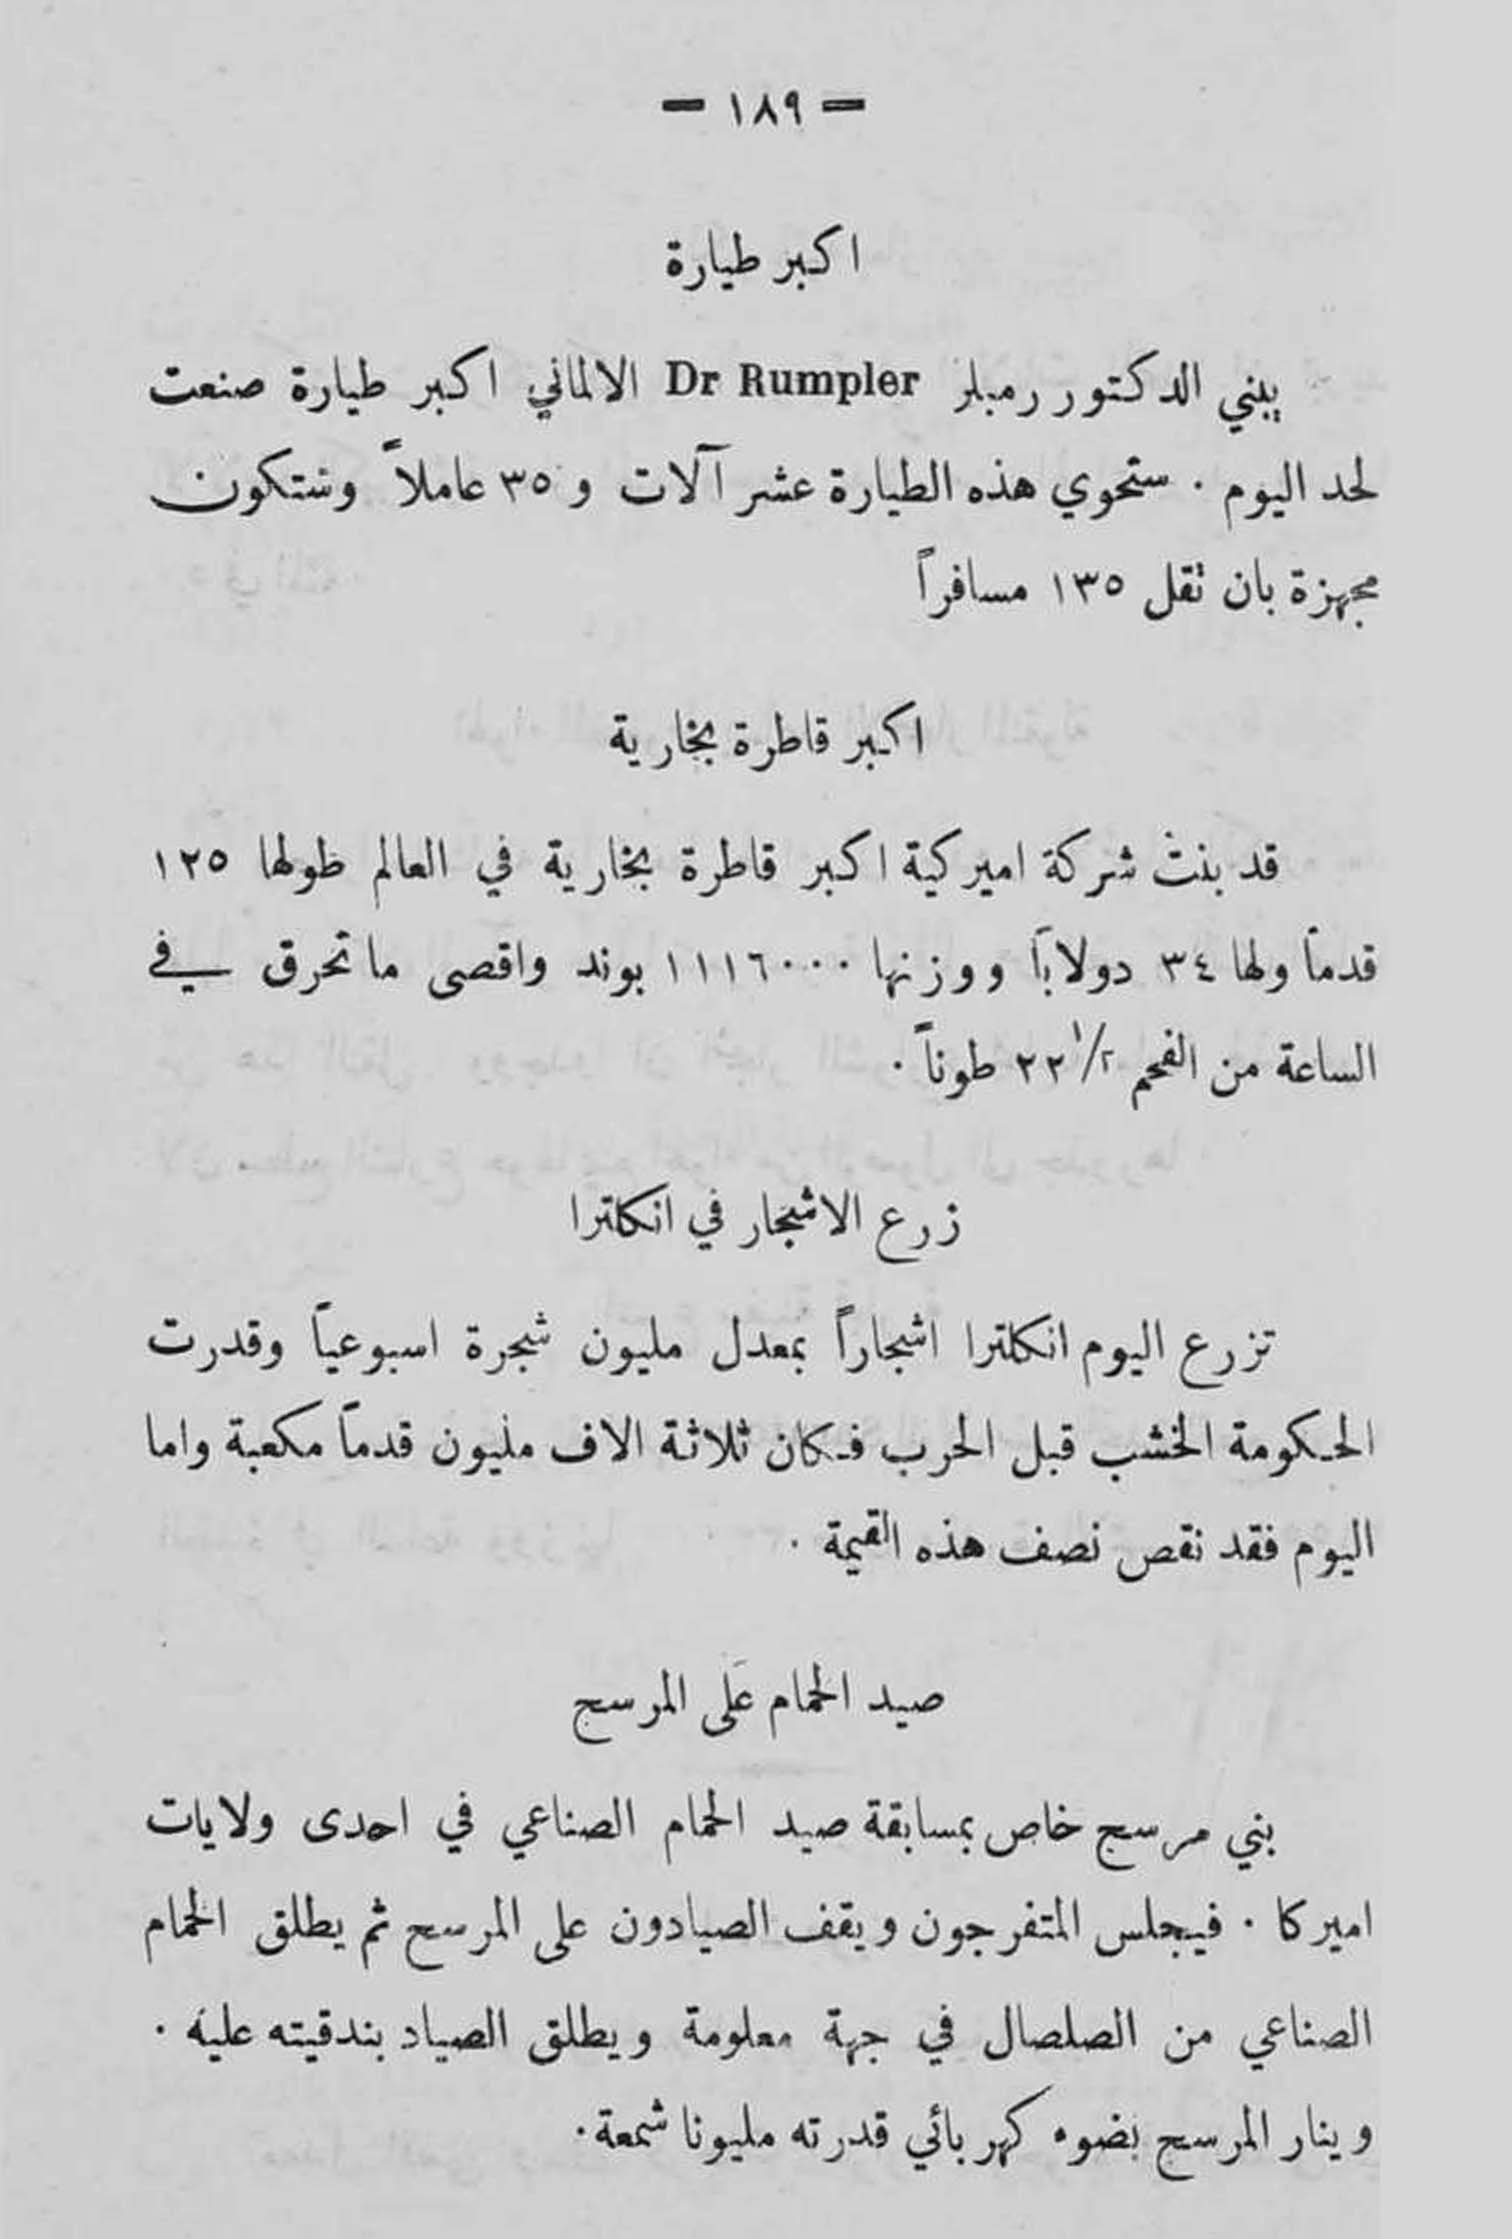 — ١٨٩ —
اكبر طيارة
يبني الدكتور رمبلر Dr Rumpler الالماني اكبر طيارة صنعت
لحد اليوم . ستحوي هذه الطيارة عشر آلات و ٣٥ عاملاً وستكون
مجهزة بان تقل ١٣٥ مسافراً
اكبر قاطرة بخارية
قد بنت شركة اميركية اكبر قاطرة بخارية في العالم طولها ١٢٥
قدماً ولها ٣٤ دولاباً ووزنها ١١١٦٠٠٠ بوند واقصى ما تحرق في
الساعة من الفحم ٢٢١/٢ طوناً .
زرع الاشجار في انكلترا
تزرع اليوم انكلترا اشجاراً بمعدل مليون شجرة اسبوعياً وقدرت
الحكومة الخشب قبل الحرب فكان ثلاثة الاف مليون قدماً مكعبة واما
اليوم فقد نقص نصف هذه القيمة .
صيد الحمام عَلى المرسح
بني مرسح خاص بمسابقة صيد الحمام الصناعي في احدى ولايات
اميركا . فيجلس المتفرجون ويقف الصيادون على المرسح ثم يطلق الحمام
الصناعي من الصلصال في جهة معلومة ويطلق الصياد بندقيته عليه .
وينار المرسح بضوء كهربائي قدرته مليونا شمعة .